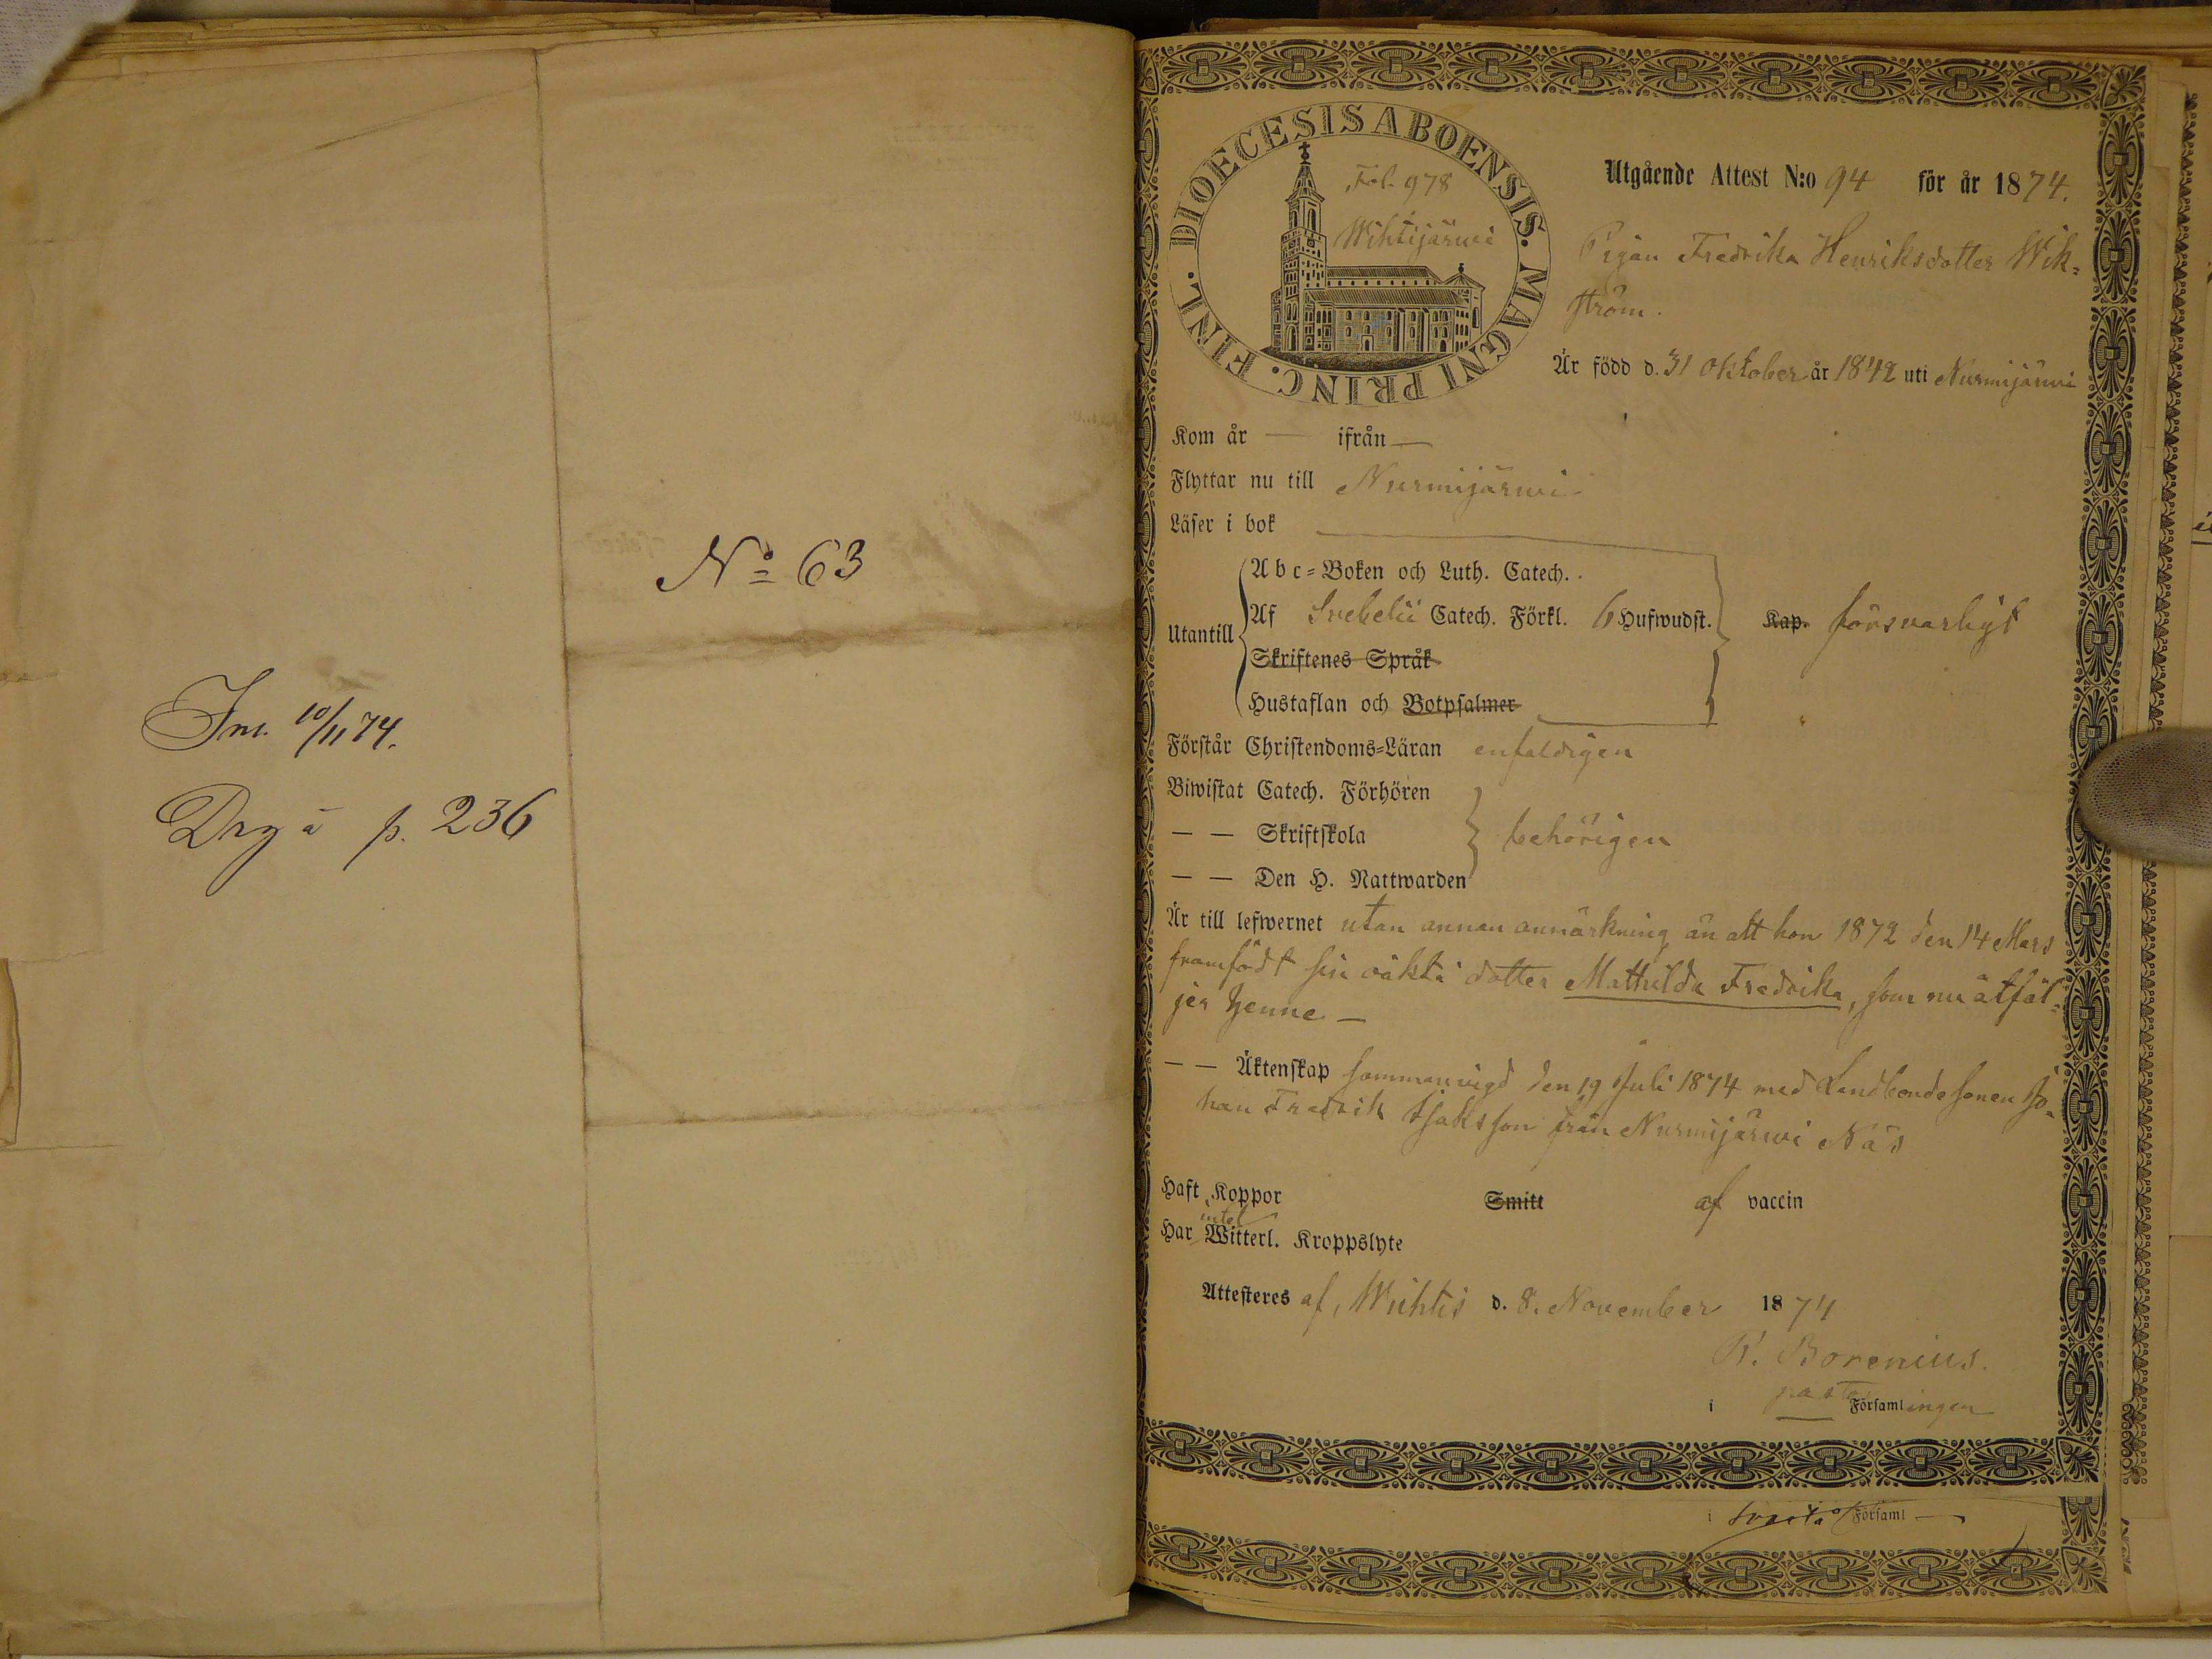 No 63
Inv. 10/11 74.
p. 236
DIOECESIS ABOENSIS. MAGNI PRINC. FINL.
Fol. 978
Wihtijärwi
Utgående Attest N:o 94 för år 1874.
Pigan Fredrika Henriksdotter Wik-
ström.
Är född d. 31 Oktober år 1842 uti Nurmijärwi
Kom år — ifrån —
Flyttar nu till Nurmijärwi
Läser i bok
Abc-Boken och Luth. Catech.
Utantill Af Svebelii Catech. Förkl. 6 Hufwudst. Kap. försvarligt
Skriftenes Språk
Hustaflan och Botpsalmer
Förstår Christendoms-Läran enfaldigen
Biwistat Catech. Förhören
— — Skriftskola behörigen
— — Den H. Nattwarden
Är till lefwernet utan annan anmärkning än att hon 1872 den 14 Mars
framfödt sin oäkta dotter Mathilda Fredrika, som nu åtföl-
jer henne —
— — Äktenskap sammanvigd den 19 Juli 1874 med Landbondesonen Jo-
han Fredrik Isaksson från Nurmijärwi Näs
Haft Koppor Smitt af vaccin
intet
Har Witterl. Kroppslyte
Attesteres af, Wichtis d. 8. November 1874
Borenius.
pastor
i Församlingen
i Församl —